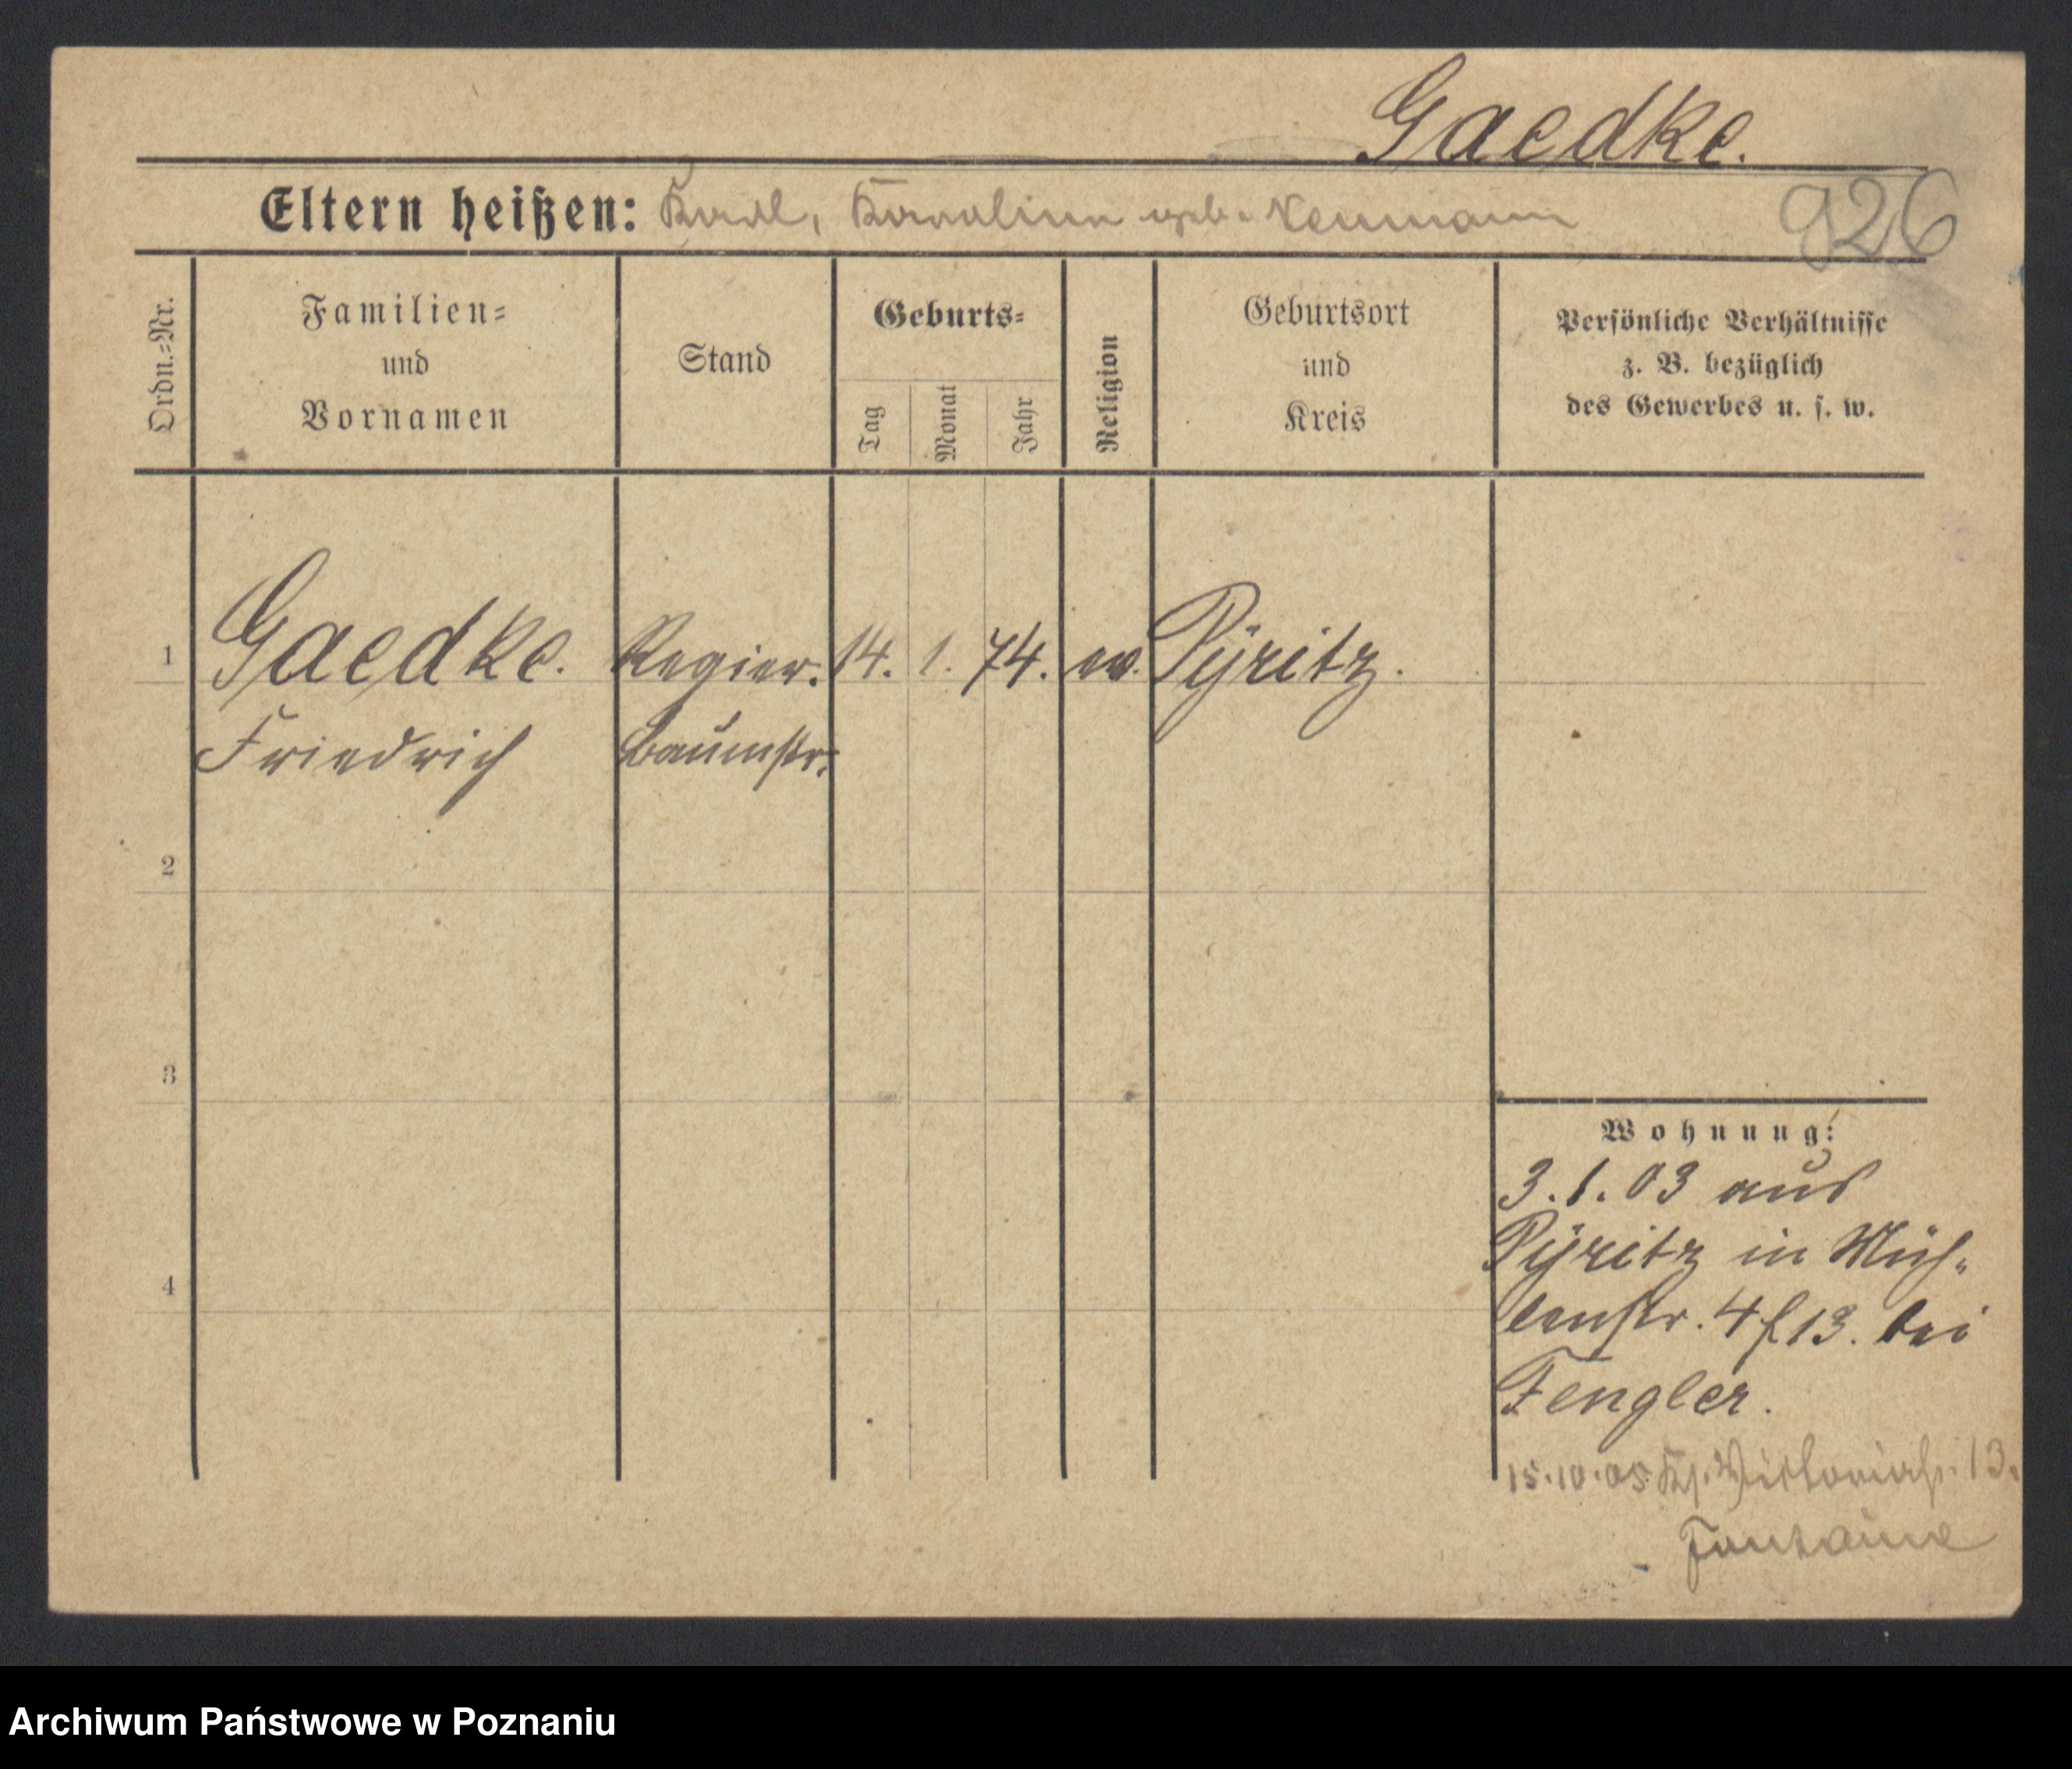 Gaedke.
Eltern heißen: Karl, Karoline geb. Neumann
926
Ordn.=Nr.
Familien=
und
Vornamen
Stand
Geburts=
Tag
Monat
Jahr
Religion
Geburtsort
und
Kreis
Persönliche Verhältnisse
z. B. bezüglich
des Gewerbes u. s. w.
1 Gaedke. Regier. 14. 1. 74. ev. Pyritz.
Friedrich Baumstr.
2
3
4
Wohnung:
3.1.03 aus
Pyritz in Müh-
lenstr. 4 f 13. bei
Fengler.
15.10.05 Viktoriastr. 13.
Fontaine
Archiwum Państwowe w Poznaniu